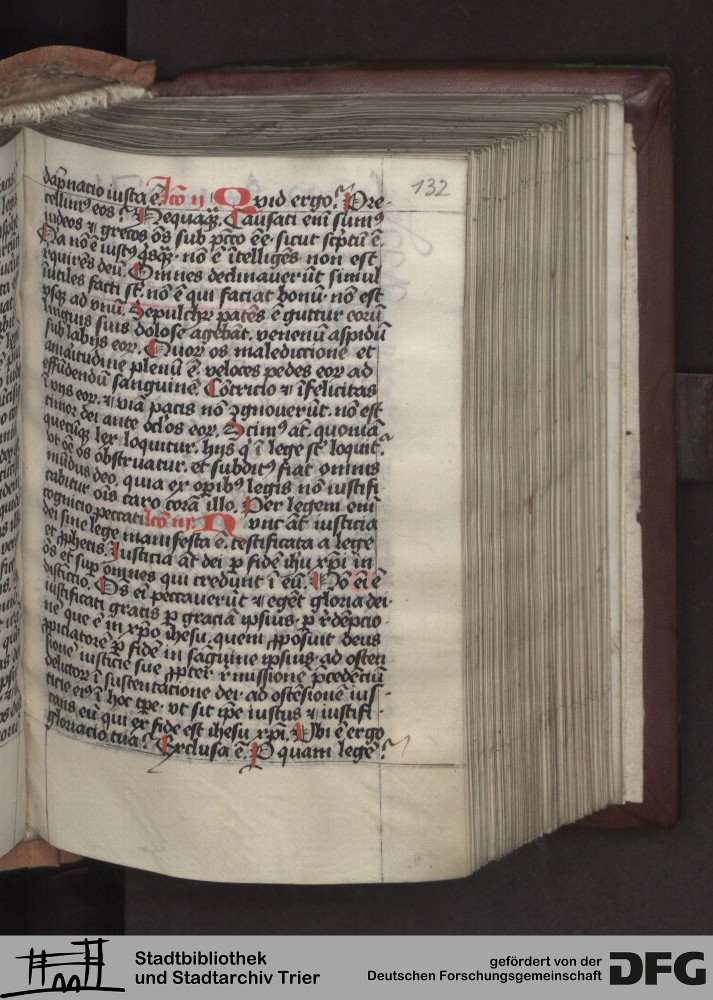 132
dāpnatio iusta ē. lcō ii Qvid ergo? Pre-
cellimꝰ eos? Nequaqȝ. Causati eni sumꝰ
iudeos ⁊ grecos oēs sub pctō ēē. sicut scptū ē
Qa nō ē iustꝰ qsqȝ. nō ē ītelligēs non est
rquirēs deū. Omnes declinauerūt simul
īutiles facti st. nō ē qui faciat bonū. nō est
vsqȝ ad vnū. Sepulchꝝ patēs ē guttur eorū
linguis suis dolose agebāt. venenū aspidū
sub labijs eoꝝ. Quoꝝ os malediccione et
amaitudine plenū ē. veloces pedes eoꝝ ad
effūdendū sanguinē. Cōtricio ⁊ īfelicitas
ī vijs eoꝝ. ⁊ viā pacis nō ꝯgnouerūt. nō est
timor dei ante oclos eoꝝ. Scimꝰ at. quoniā
quecūqȝ lex loquitur. hijs q ī lege st loquit.
vt oē os obstruatur. et subditꝰ fiat omnis
mūdus deo. quia ex opibꝰ legis nō iustifi
cabitur oīs caro corā illo. Per legem eni
cognicio peccati lcō iii Nvnc āt iusticia
dei sine lege manifesta ē. testificata a lege
et ꝓphetis. Iusticia āt dei p fidē ihū xpi in
oēs et sup omnes qui credunt ī eū. Nō ei ē
distīctio. Oēs ei peccauerūt ⁊ egēt gloria dei.
iustificati gratis p graciā ipsius. p rdēpcio
nē que ē in xpō ihesu. quem ꝓposuit deus
ꝓpiciatorē p fidē in sāguine ipsius. ad osten
sionē iusticie sue ꝓpter rmissionē pcedēciū
delictoꝝ ī sustentacione dei. ad ostēsionē ius-
ticie eiꝰ ī hoc tpe. vt sit ipe iustus ⁊ iustifi-
cans eū qui ex fide est ihesu xpi. Vbi ē ergo
gloriacio tua? Exclusa ē. P quam legē?
Stadtbibliothek
und Stadtarchiv Trier
gefördert von der
Deutschen Forschungsgemeinschaft
DFG